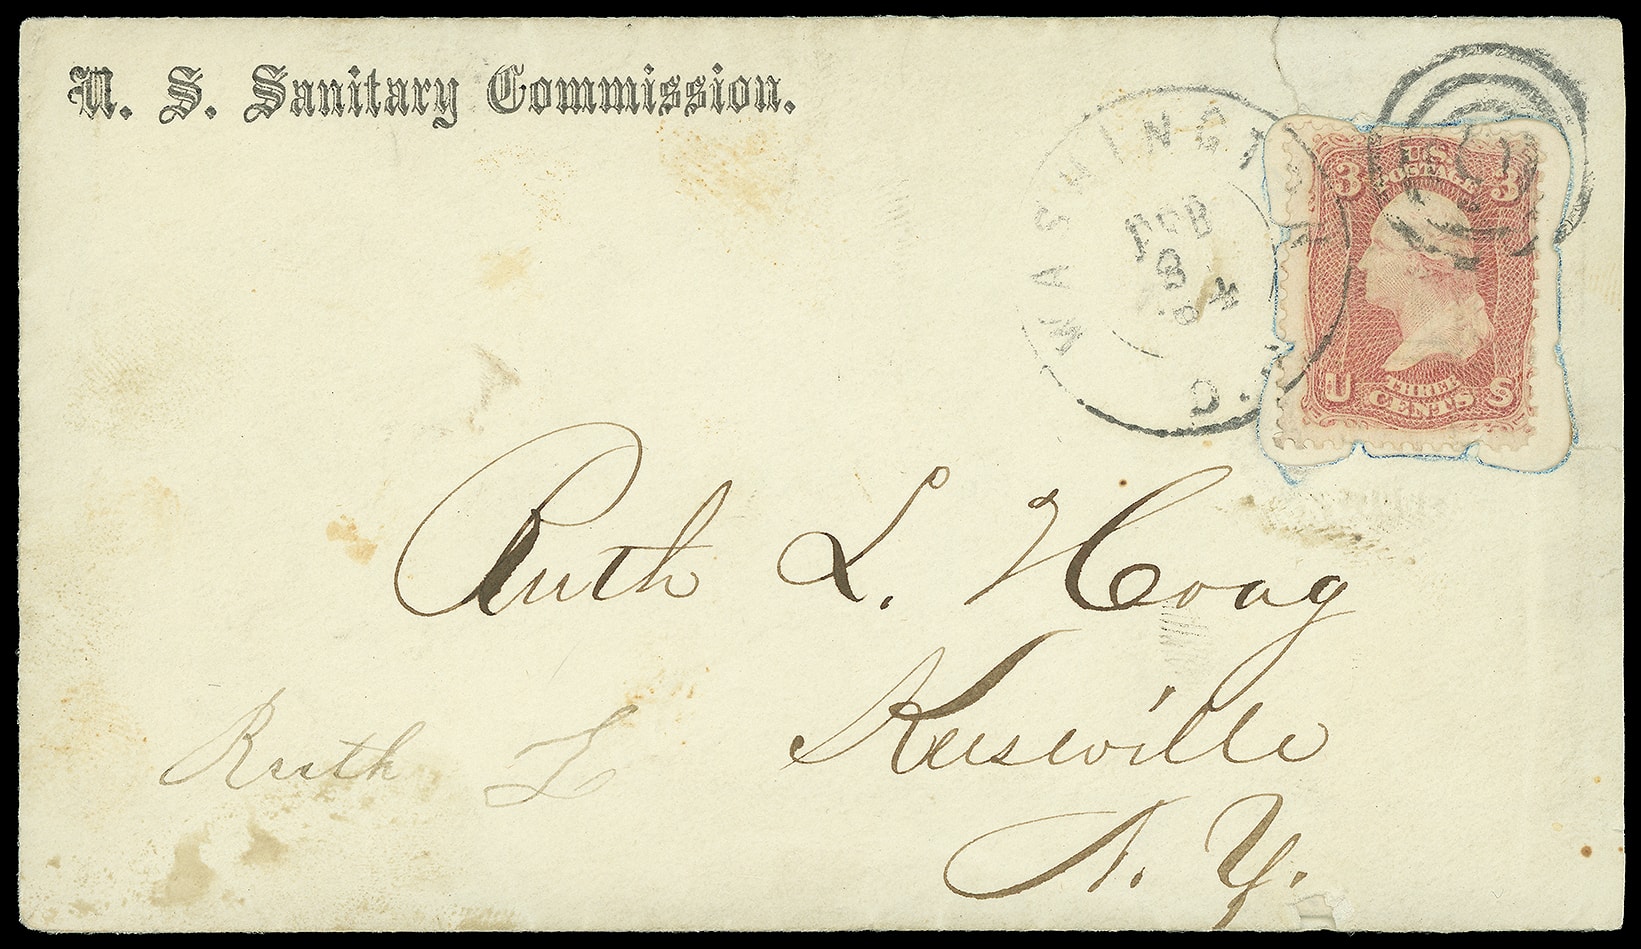 U. S. Sanitary Commission.
WASHINGTON D.C.
FEB
3
64
3 U.S. POSTAGE 3
U THREE CENTS S
Ruth L. Hoag
Keeseville
N. Y.
Ruth L